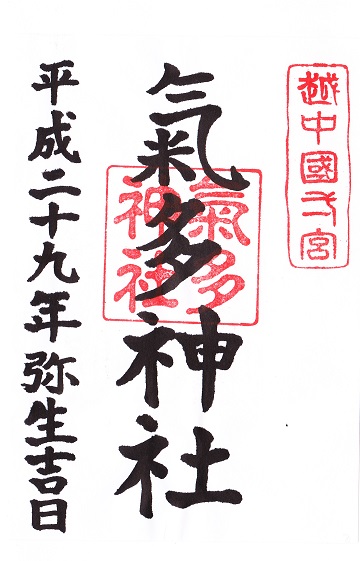 越中國一宮
氣多神社
氣多神社
平成二十九年弥生吉日